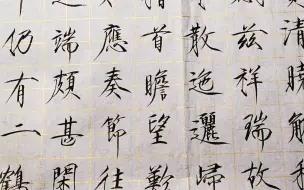 清曉
茲祥瑞故
散迤邐歸
首瞻望歎
應奏節往
端頗甚閑
仍有二鶴